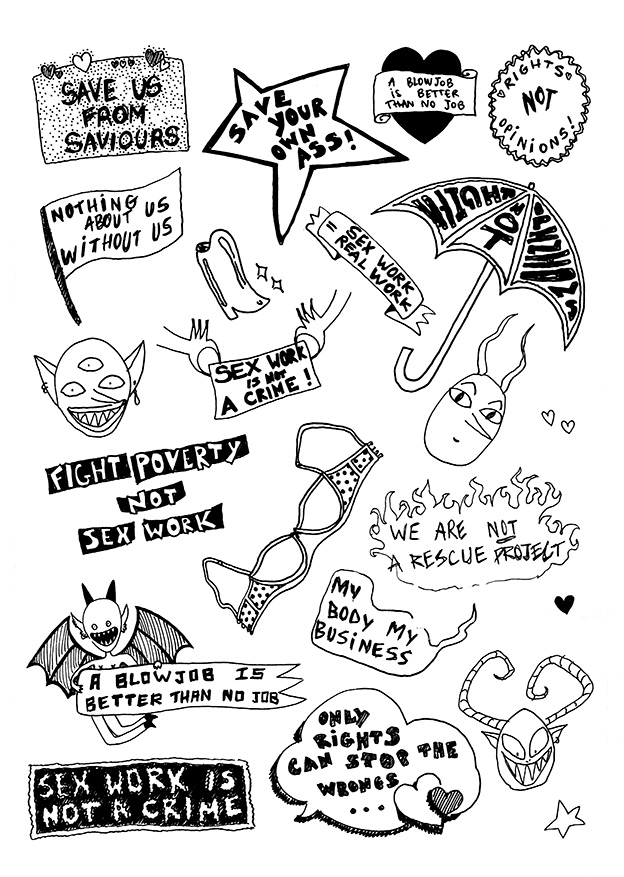 SAVE US
FROM
SAVIOURS
SAVE
YOUR
OWN
ASS!
A BLOWJOB
IS BETTER
THAN NO JOB
RIGHTS
NOT
OPINIONS!
NOTHING
ABOUT US
WITHOUT US
SEX WORK
REAL WORK
RIGHT
TO
SEX WORK
IS NOT
A CRIME!
FIGHT POVERTY
NOT
SEX WORK
WE ARE NOT
A RESCUE PROJECT
MY
BODY MY
BUSINESS
A BLOWJOB IS
BETTER THAN NO JOB
ONLY
RIGHTS
CAN STOP THE
WRONGS
...
SEX WORK IS
NOT A CRIME